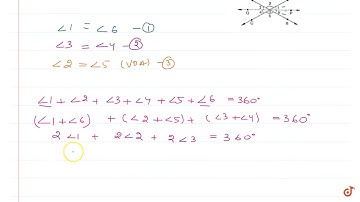 ∠1 = ∠6 - ①
∠3 = ∠4 - ②
∠2 = ∠5 (VOA) - ③
∠1 + ∠2 + ∠3 + ∠4 + ∠5 + ∠6 = 360°
(∠1 + ∠6) + (∠2 + ∠5) + (∠3 + ∠4) = 360°
2∠1 + 2∠2 + 2∠3 = 360°